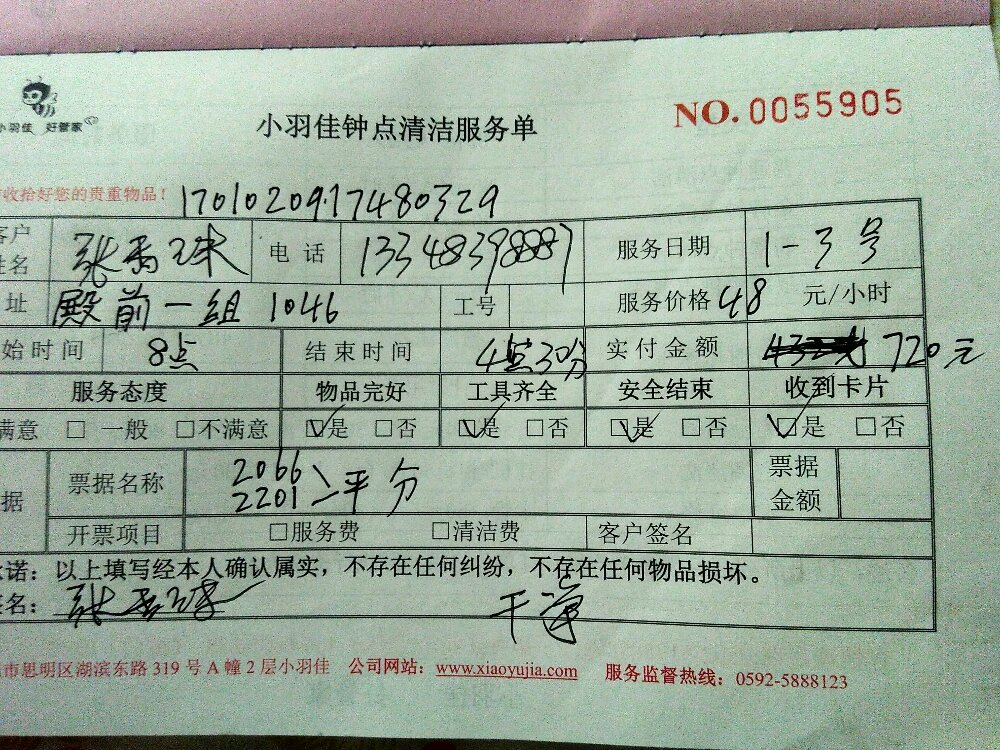 小羽佳 好管家
小羽佳钟点清洁服务单
NO. 0055905
收拾好您的贵重物品！ 1701020917480329
客户姓名 张 电话 13348398887 服务日期 1-3号
址 殿前一组 1046 工号 服务价格 48 元/小时
始时间 8点 结束时间 4点30分 实付金额 720元
服务态度 物品完好 工具齐全 安全结束 收到卡片
满意 □ 一般 □不满意 ☑是 □否 ☑是 □否 ☑是 □否 ☑是 □否
据 票据名称 2066 2201 平分 票据金额
开票项目 □服务费 □清洁费 客户签名
诺：以上填写经本人确认属实，不存在任何纠纷，不存在任何物品损坏。
名：张 干净
市思明区湖滨东路 319 号 A 幢 2 层小羽佳 公司网站：www.xiaoyujia.com 服务监督热线：0592-5888123